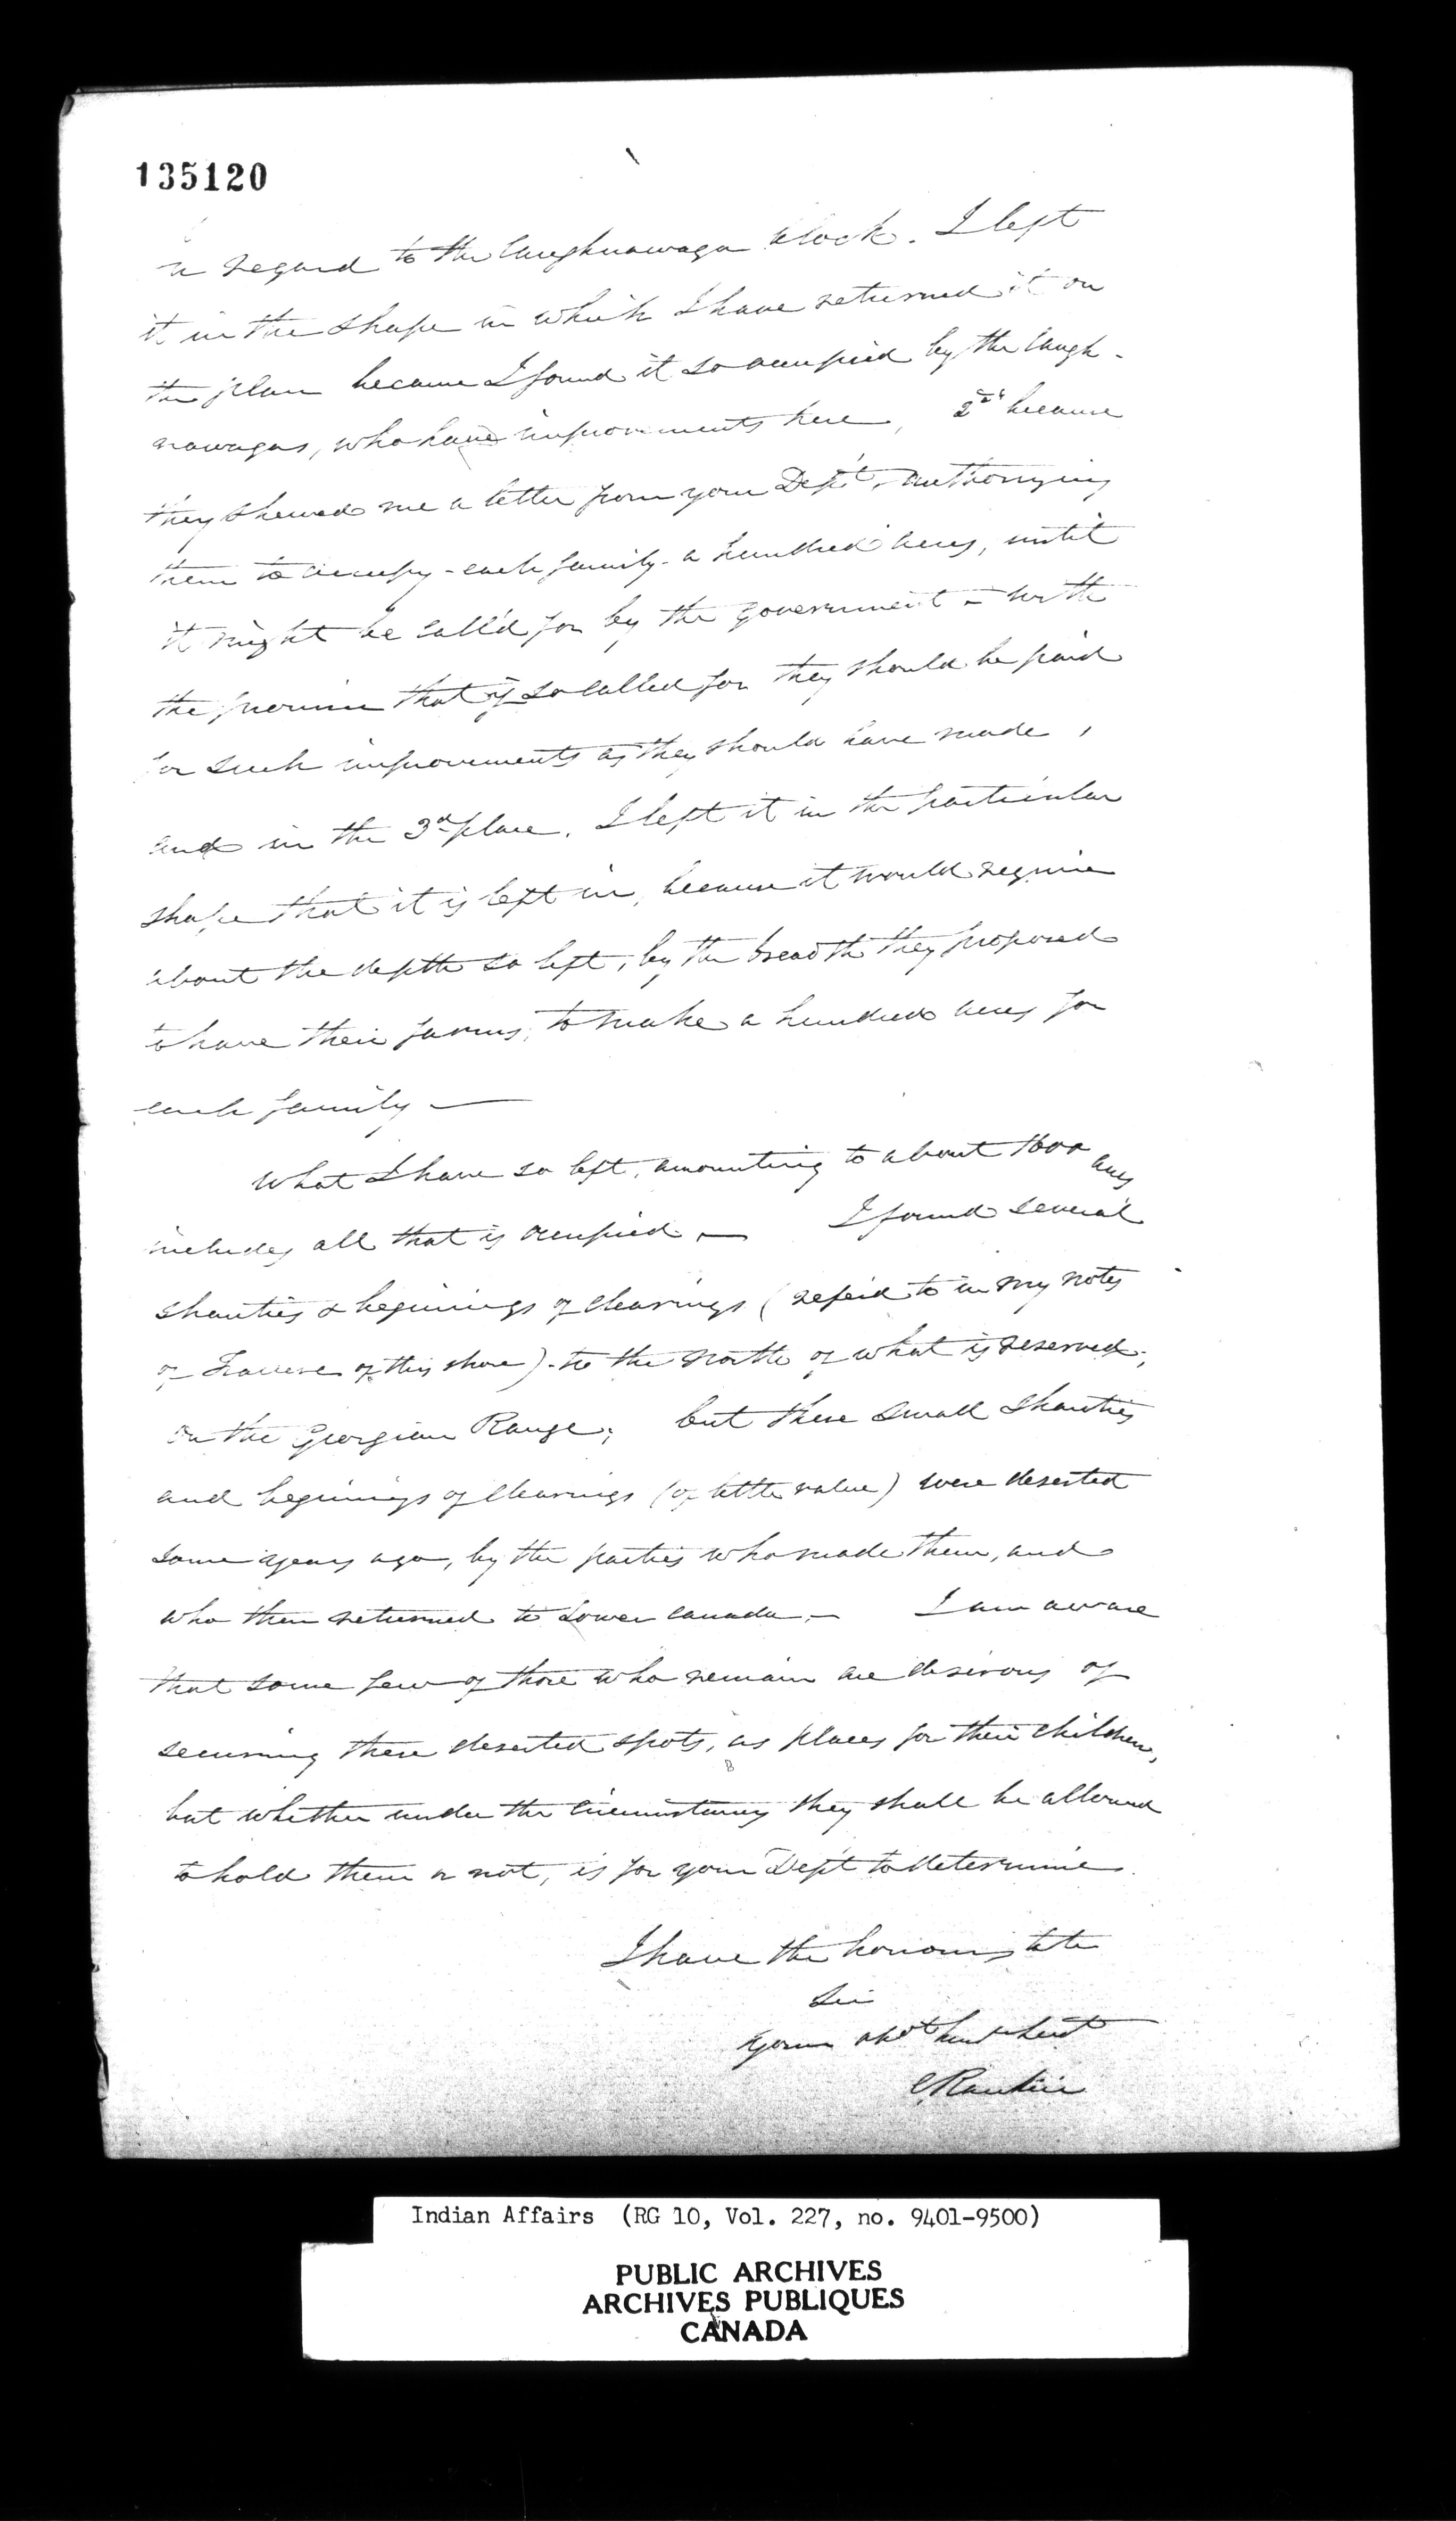 135120
In regard to the Caughnawaga block. I left
it in the shape in which I have returned it on
the plan because I found it so occupied by the Caugh-
nawagas, who have improvements here, 2nd because
they shewed me a letter from your Dept. authorizing
them to occupy - each family - a hundred acres, until
it might be call'd for by the government - with
the promise that if so called for they should be paid
for such improvements as they should have made,
and in the 3rd place. I left it in the particular
shape that it is left in, because it would require
about the depth so left, by the breadth they proposed
to have their farms, to make a hundred acres for
each family —
What I have so left, amounting to about 1600 acres
includes all that is occupied. — I found several
shanties & beginings of clearings (refer'd to in my notes
of Traverse of this shore) - to the north of what is reserved,
on the Georgian Range; but these small shanties
and beginings of clearings (of little value) were deserted
some years ago, by the parties who made them, and
who then returned to Lower Canada. — I am aware
that some few of those who remain are desirous of
securing these deserted spots, as places for their children,
but whether under the circumstances they shall be allowed
to hold them or not, is for your Dept to determine.
I have the honour to be
Sir
Your obdt humb servt
C Rankin
Indian Affairs (RG 10, Vol. 227, no. 9401-9500)
PUBLIC ARCHIVES
ARCHIVES PUBLIQUES
CANADA